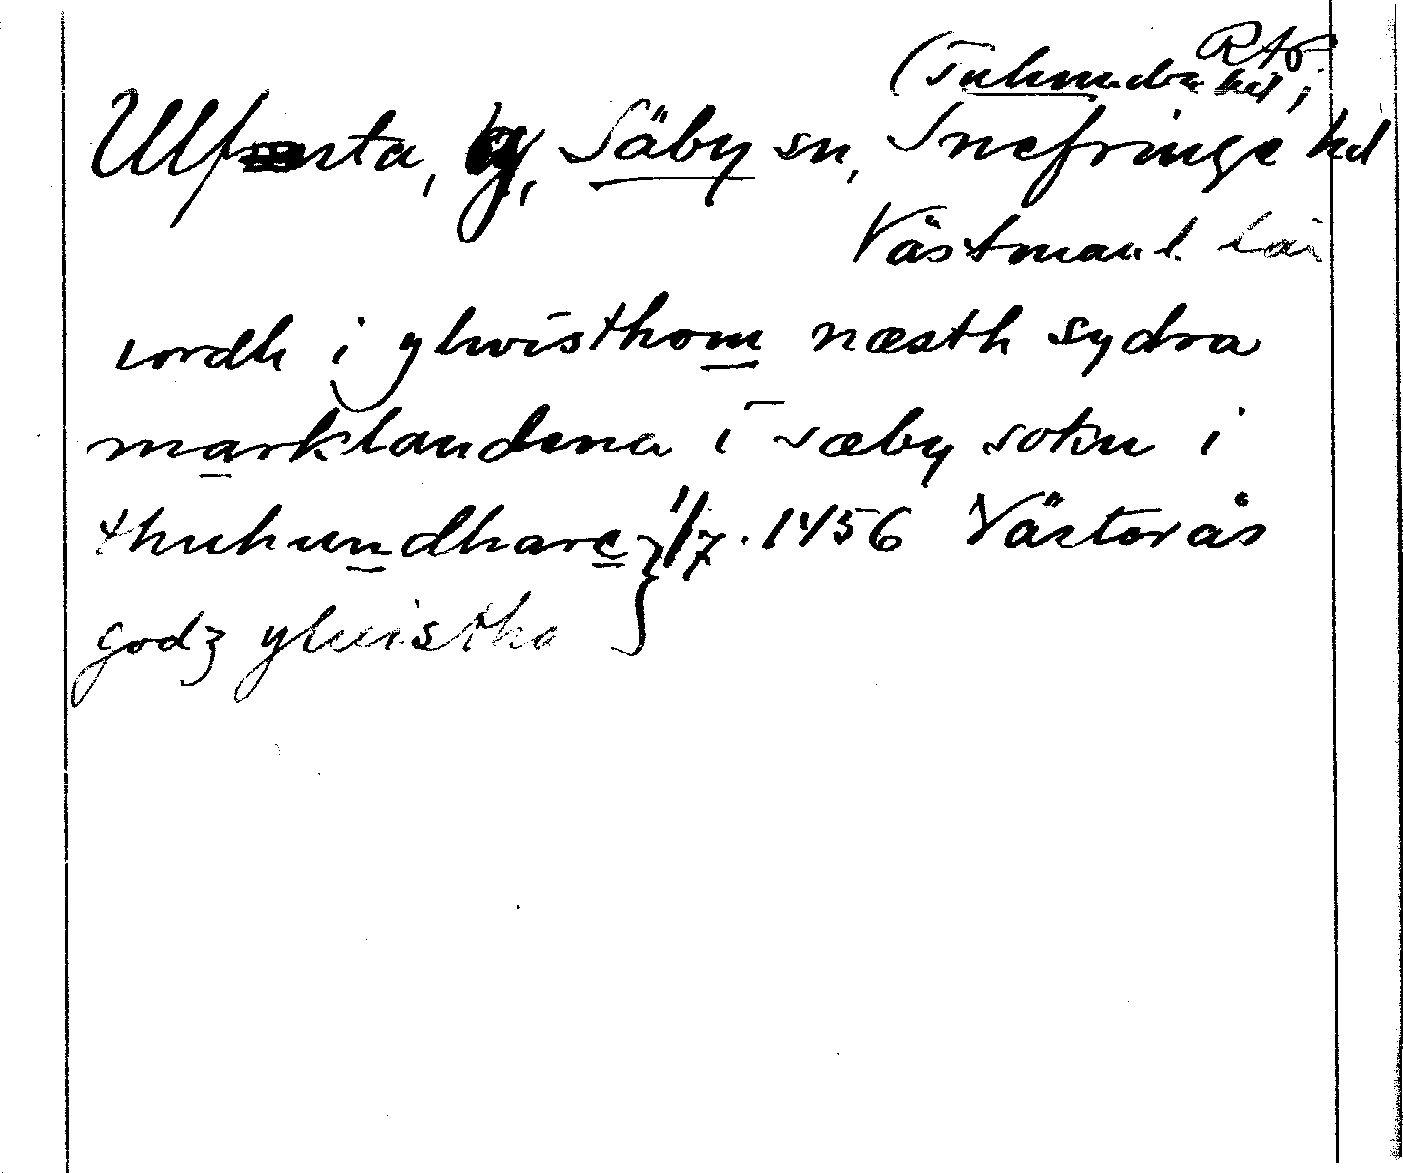 RAp
(Tuhundra hd;
Ulvesta, by, Säby sn, Snefringe hd
Västmanl. län
iordh i ylwisthom næsth sydra
marklandena i sæby sokn i
thuhundhare } 1/7. 1456 Västerås
godz ylwistha }